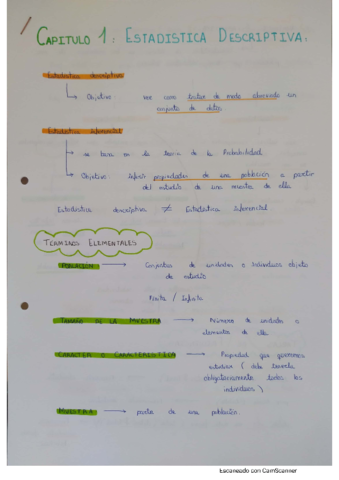 CAPITULO 1: ESTADISTICA DESCRIPTIVA.
Estadística descriptiva
Objetivo ver como tratar de modo abreviado un
conjunto de datos.
Estadística inferencial
se basa en la teoria de la Probabilidad.
Objetivo: inferir propiedades de una población a partir
del estudio de una muestra de ella
Estadística descriptiva ≠ Estadística inferencial
TERMINOS ELEMENTALES
POBLACIÓN → Conjuntos de unidades o individuos objeto
de estudio
Finita / Infinita
TAMAÑO DE LA MUESTRA → Número de unidades o
elementos de ella
CARACTER O CARACTERISTICA → Propiedad que queremos
estudiar ( debe tenerla
obligatoriamente todos los
individuos )
MUESTRA → parte de una población.
Escaneado con CamScanner